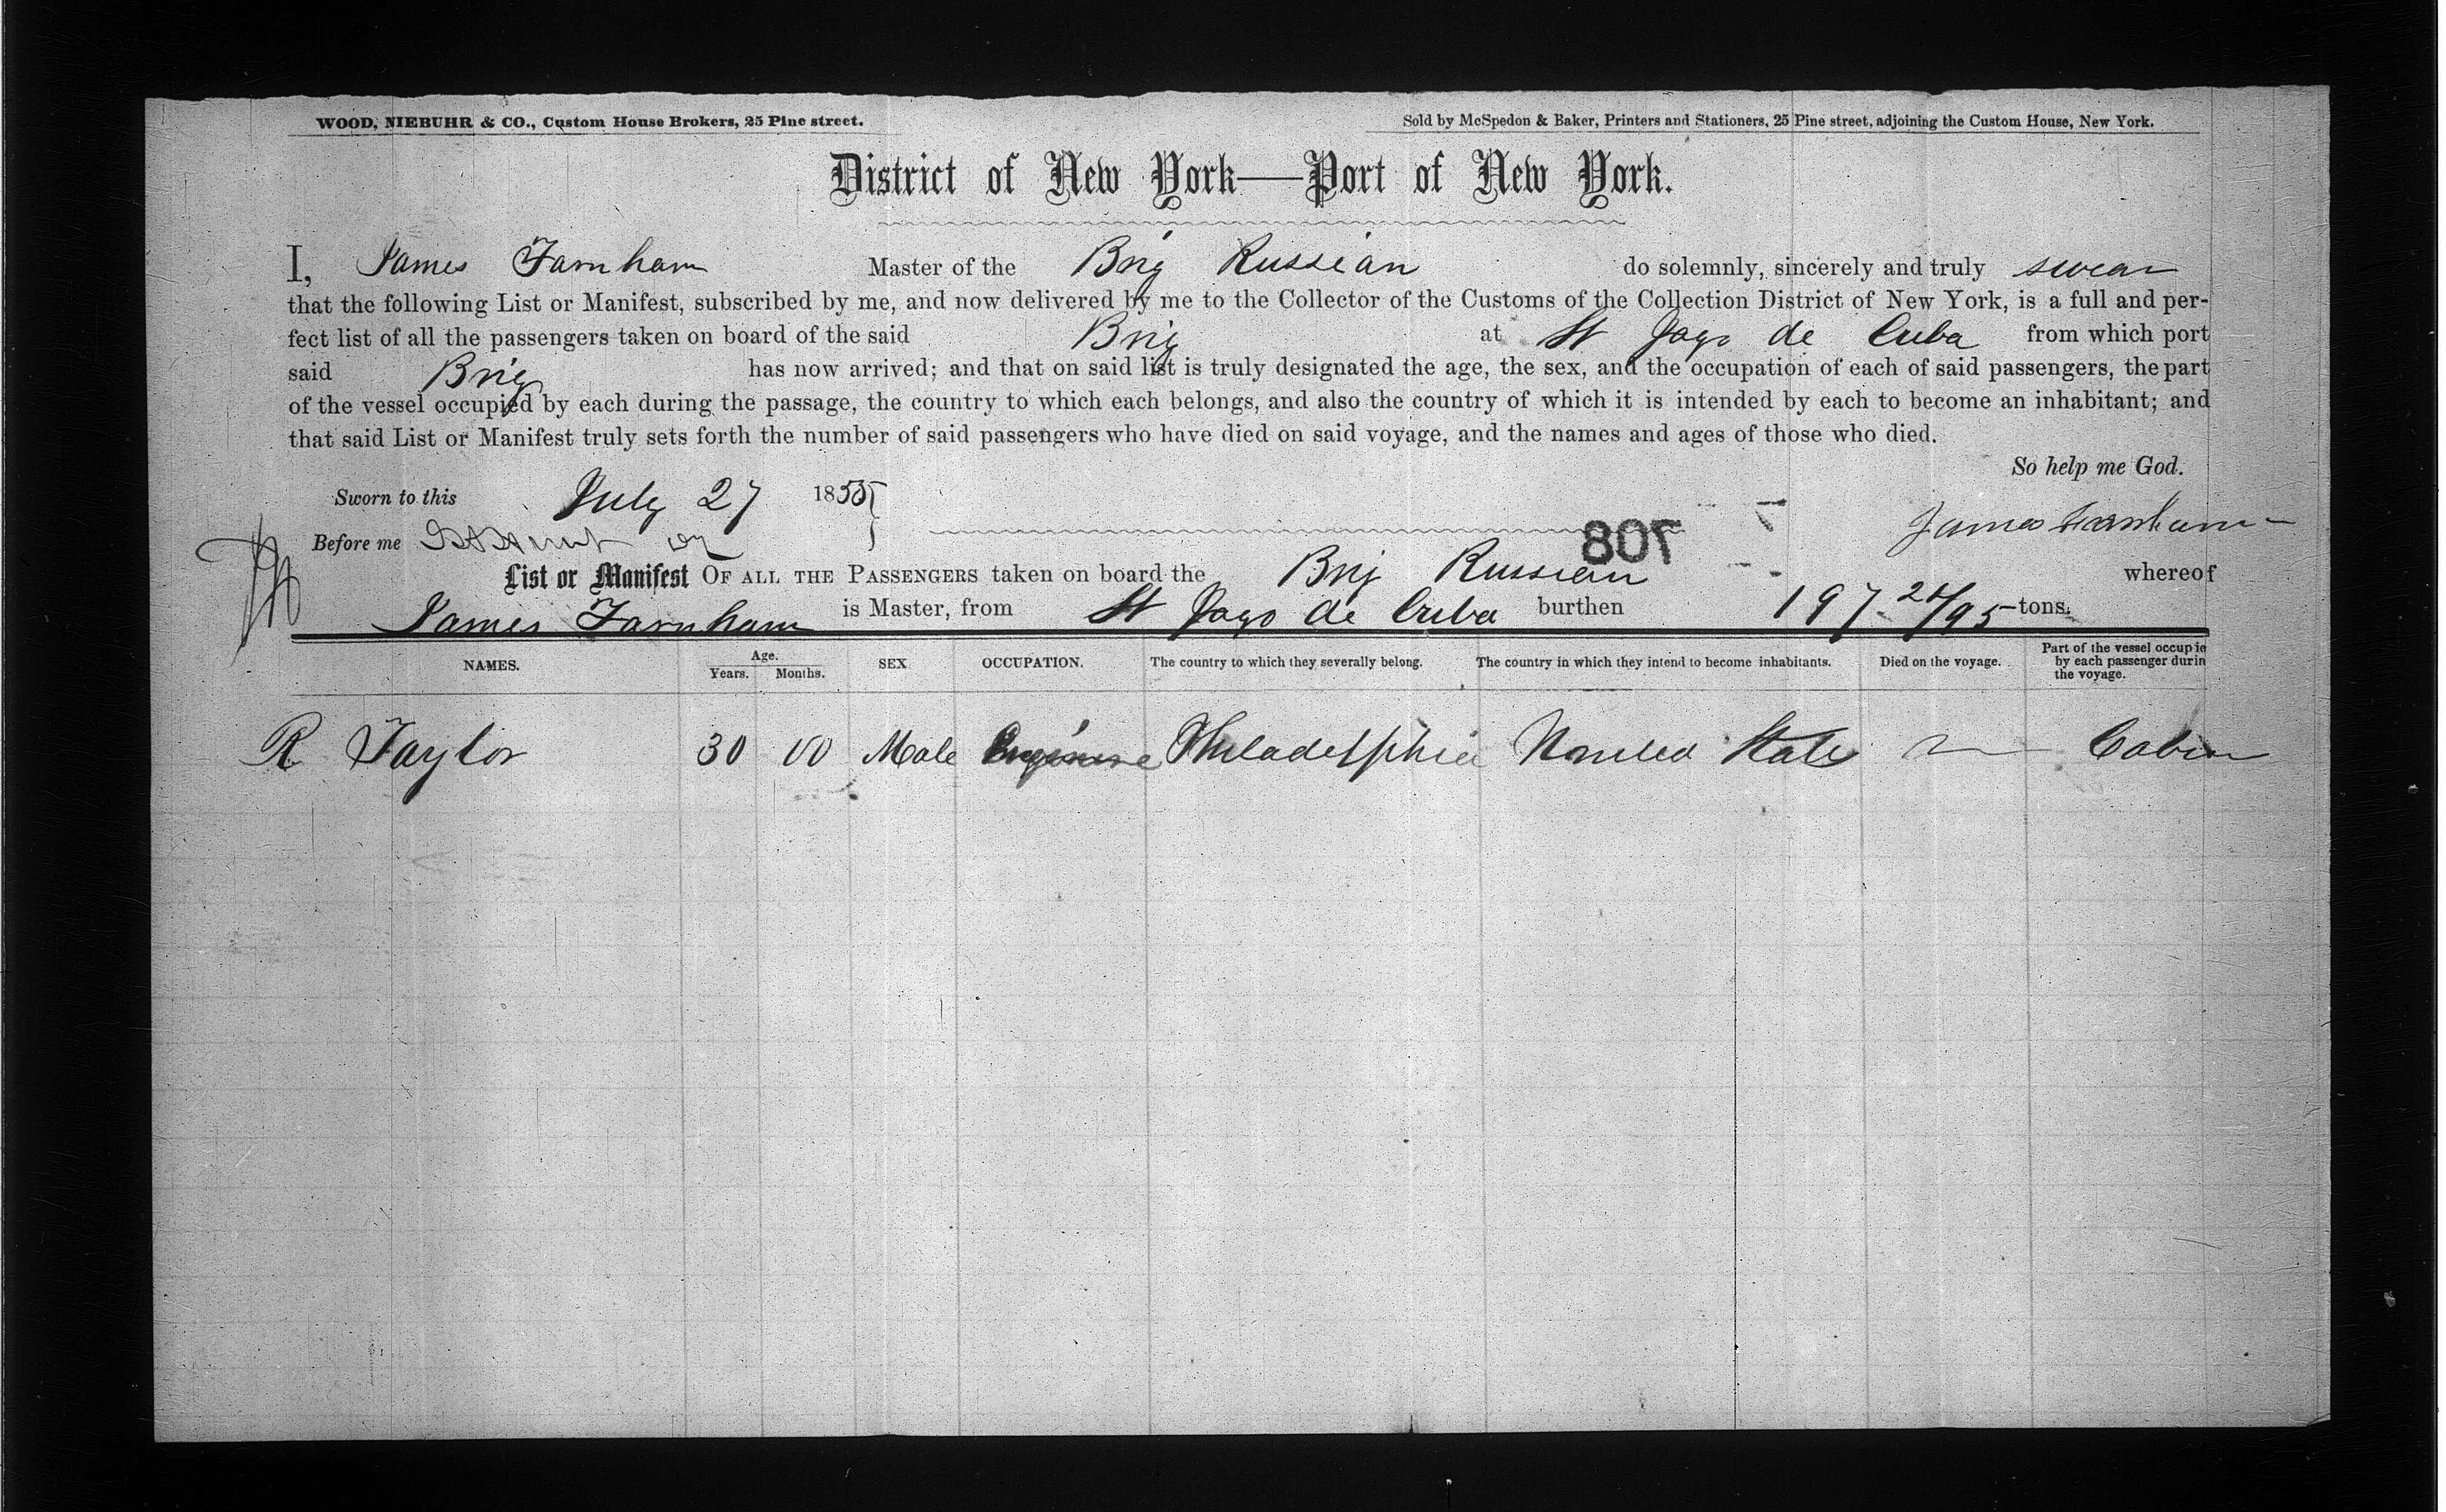 WOOD, NIEBUHR & CO., Custom House Brokers, 25 Pine street.
Sold by McSpedon & Baker, Printers and Stationers, 25 Pine street, adjoining the Custom House, New York.
District of New York—Port of New York.
I, James Farnham Master of the Brig Russian do solemnly, sincerely and truly swear
that the following List or Manifest, subscribed by me, and now delivered by me to the Collector of the Customs of the Collection District of New York, is a full and per-
fect list of all the passengers taken on board of the said Brig at St Jago de Cuba from which port
said Brig has now arrived; and that on said list is truly designated the age, the sex, and the occupation of each of said passengers, the part
of the vessel occupied by each during the passage, the country to which each belongs, and also the country of which it is intended by each to become an inhabitant; and
that said List or Manifest truly sets forth the number of said passengers who have died on said voyage, and the names and ages of those who died.
So help me God.
Sworn to this July 27 1855
James Farnham
Before me
708
List or Manifest OF ALL THE PASSENGERS taken on board the Brig Russian whereof
James Farnham is Master, from St Jago de Cuba burthen 197 24/95 tons.
NAMES. Age. Years. Months. SEX. OCCUPATION. The country to which they severally belong. The country in which they intend to become inhabitants. Died on the voyage. Part of the vessel occupie by each passenger durin the voyage.
R Taylor 30 00 Male Philadelphia United State Cabin